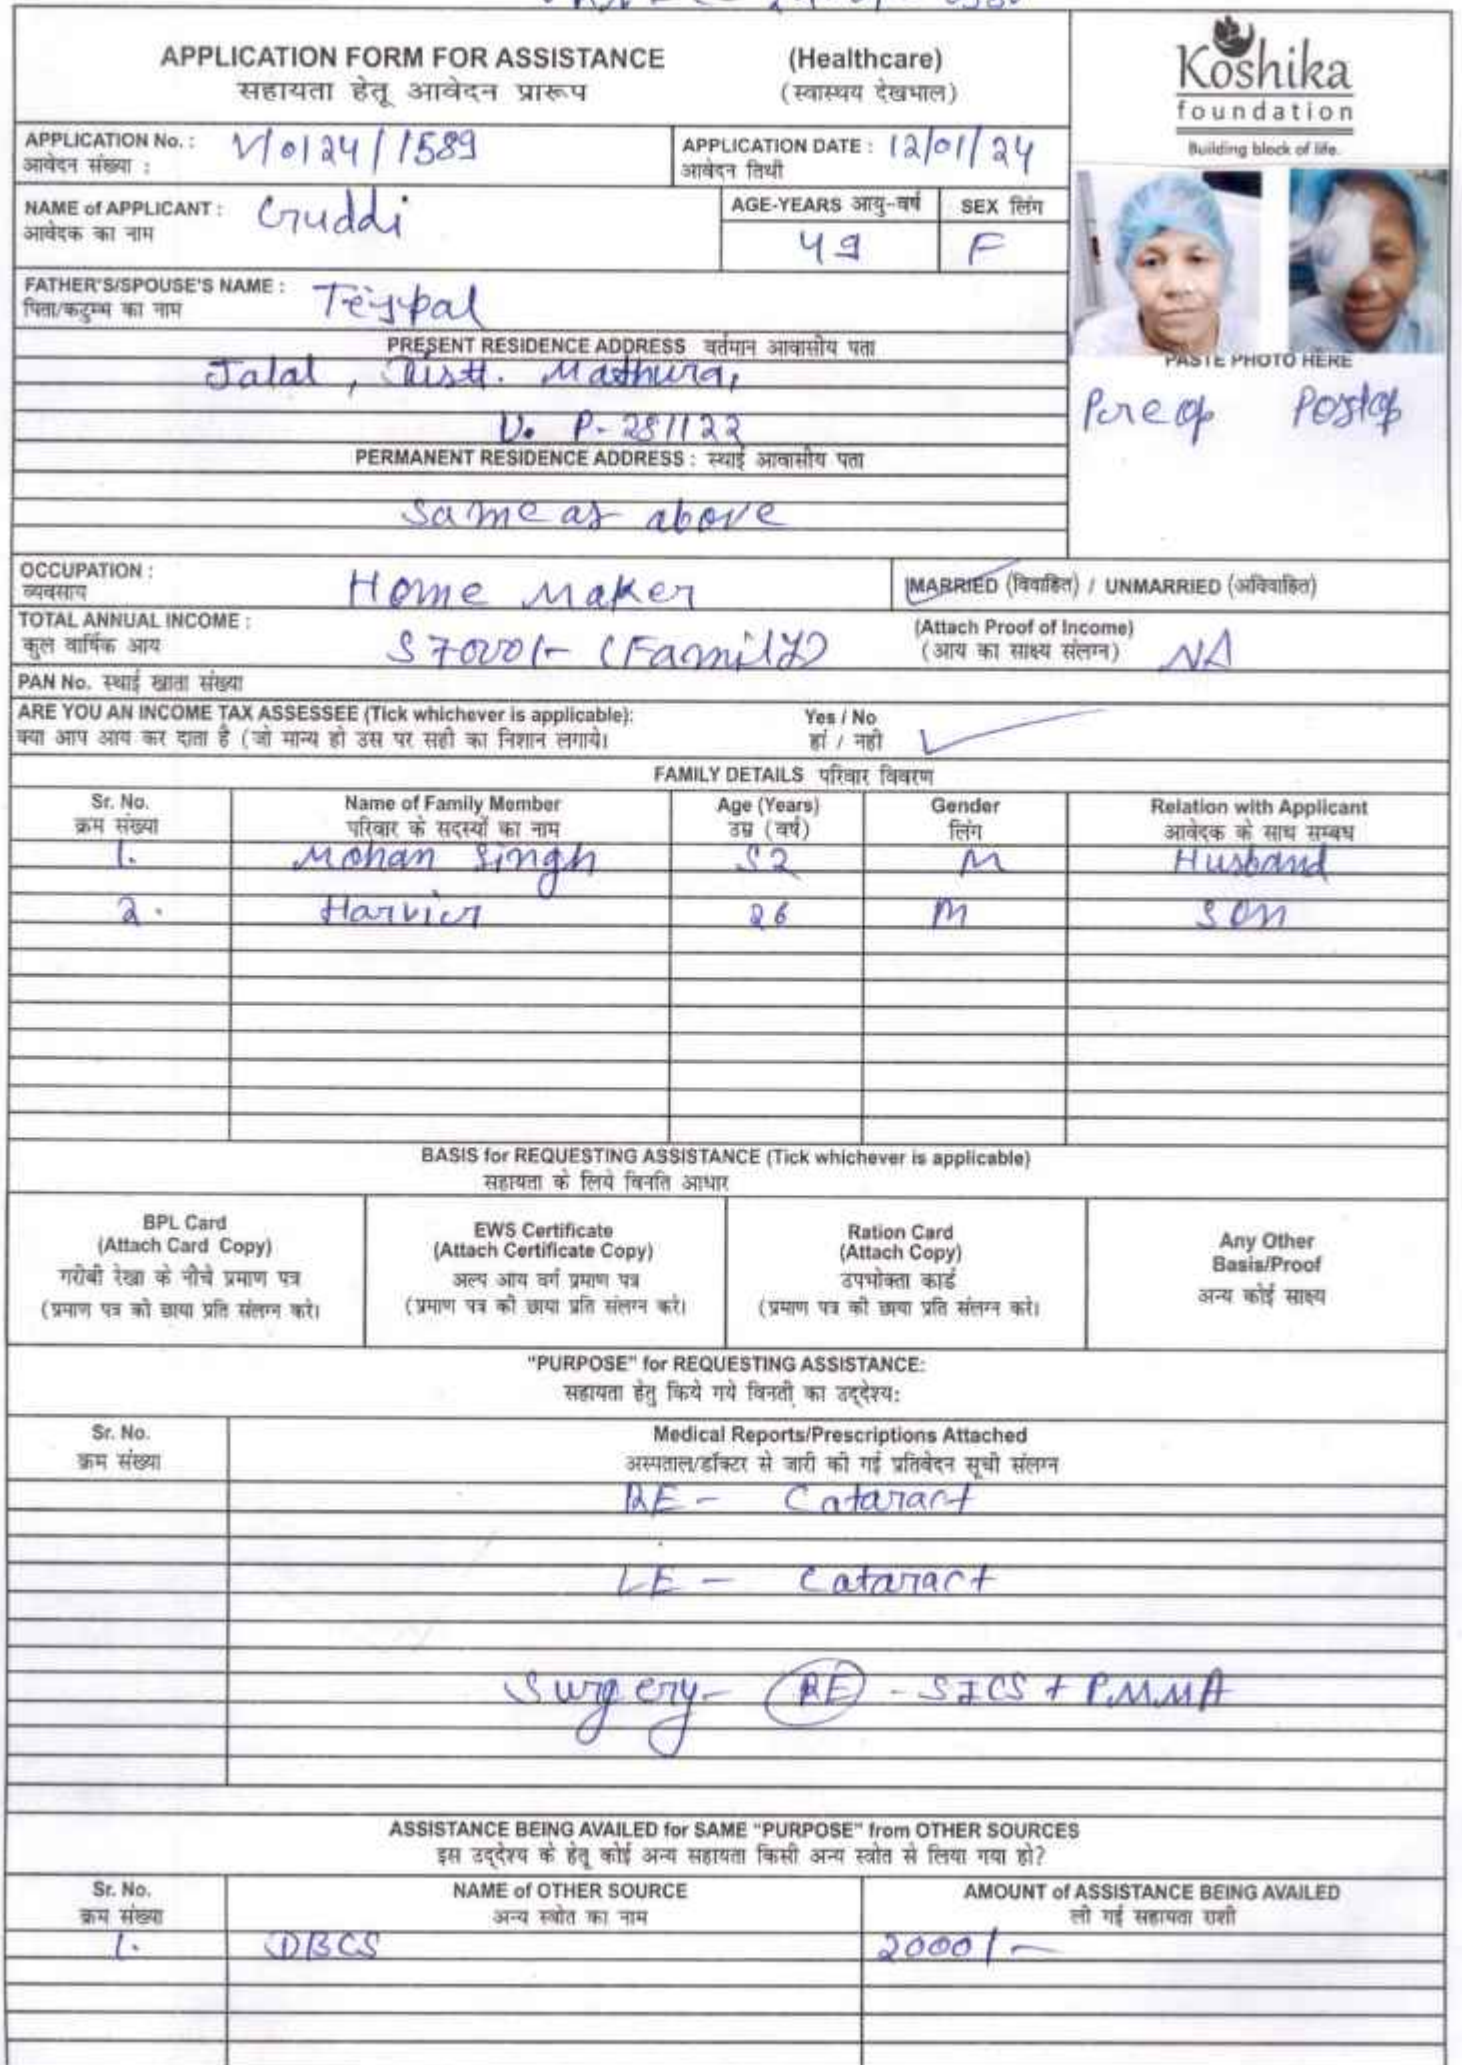 APPLICATION FORM FOR ASSISTANCE (Healthcare)
सहायता हेतू आवेदन प्रारूप (स्वास्थय देखभाल)
Koshika
foundation
Building block of life.
APPLICATION No. : V/0124/1589 APPLICATION DATE : 12/01/24
आवेदन संख्या : आवेदन तिथी
NAME of APPLICANT : Guddi AGE-YEARS आयु-वर्ष SEX लिंग
आवेदक का नाम 49 F
FATHER'S/SPOUSE'S NAME : Tejpal
पिता/कटुम्भ का नाम
PASTE PHOTO HERE
Preop Postop
PRESENT RESIDENCE ADDRESS वर्तमान आवासीय पता
Jalal, Distt. Mathura,
U. P- 281122
PERMANENT RESIDENCE ADDRESS : स्थाई आवासीय पता
Same as above
OCCUPATION : Home Maker MARRIED (विवाहित) / UNMARRIED (अविवाहित)
व्यवसाय
TOTAL ANNUAL INCOME : 57000/- (Family) (Attach Proof of Income) NA
कुल वार्षिक आय (आय का साक्ष्य संलग्न)
PAN No. स्थाई खाता संख्या
ARE YOU AN INCOME TAX ASSESSEE (Tick whichever is applicable): Yes / No
क्या आप आय कर दाता है (जो मान्य हो उस पर सही का निशान लगाये। हां / नही ✓
FAMILY DETAILS परिवार विवरण
Sr. No. Name of Family Member Age (Years) Gender Relation with Applicant
क्रम संख्या परिवार के सदस्यों का नाम उम्र (वर्ष) लिंग आवेदक के साथ सम्बध
1. Mohan Singh 52 M Husband
2. Harvir 26 M Son
BASIS for REQUESTING ASSISTANCE (Tick whichever is applicable)
सहायता के लिये विनति आधार
BPL Card
(Attach Card Copy)
गरीबी रेखा के नीचे प्रमाण पत्र
(प्रमाण पत्र की छाया प्रति संलग्न करे।
EWS Certificate
(Attach Certificate Copy)
अल्प आय वर्ग प्रमाण पत्र
(प्रमाण पत्र की छाया प्रति संलग्न करे।
Ration Card
(Attach Copy)
उपभोक्ता कार्ड
(प्रमाण पत्र की छाया प्रति संलग्न करे।
Any Other
Basis/Proof
अन्य कोई साक्ष्य
"PURPOSE" for REQUESTING ASSISTANCE:
सहायता हेतु किये गये विनती का उद्देश्य:
Sr. No. Medical Reports/Prescriptions Attached
क्रम संख्या अस्पताल/डॉक्टर से जारी की गई प्रतिवेदन सूची संलग्न
RE - Cataract
LE - Cataract
Surgery - RE - SICS + PMMA
ASSISTANCE BEING AVAILED for SAME "PURPOSE" from OTHER SOURCES
इस उद्देश्य के हेतू कोई अन्य सहायता किसी अन्य स्त्रोत से लिया गया हो?
Sr. No. NAME of OTHER SOURCE AMOUNT of ASSISTANCE BEING AVAILED
क्रम संख्या अन्य स्त्रोत का नाम ली गई सहायता राशी
1. DBCS 2000/-